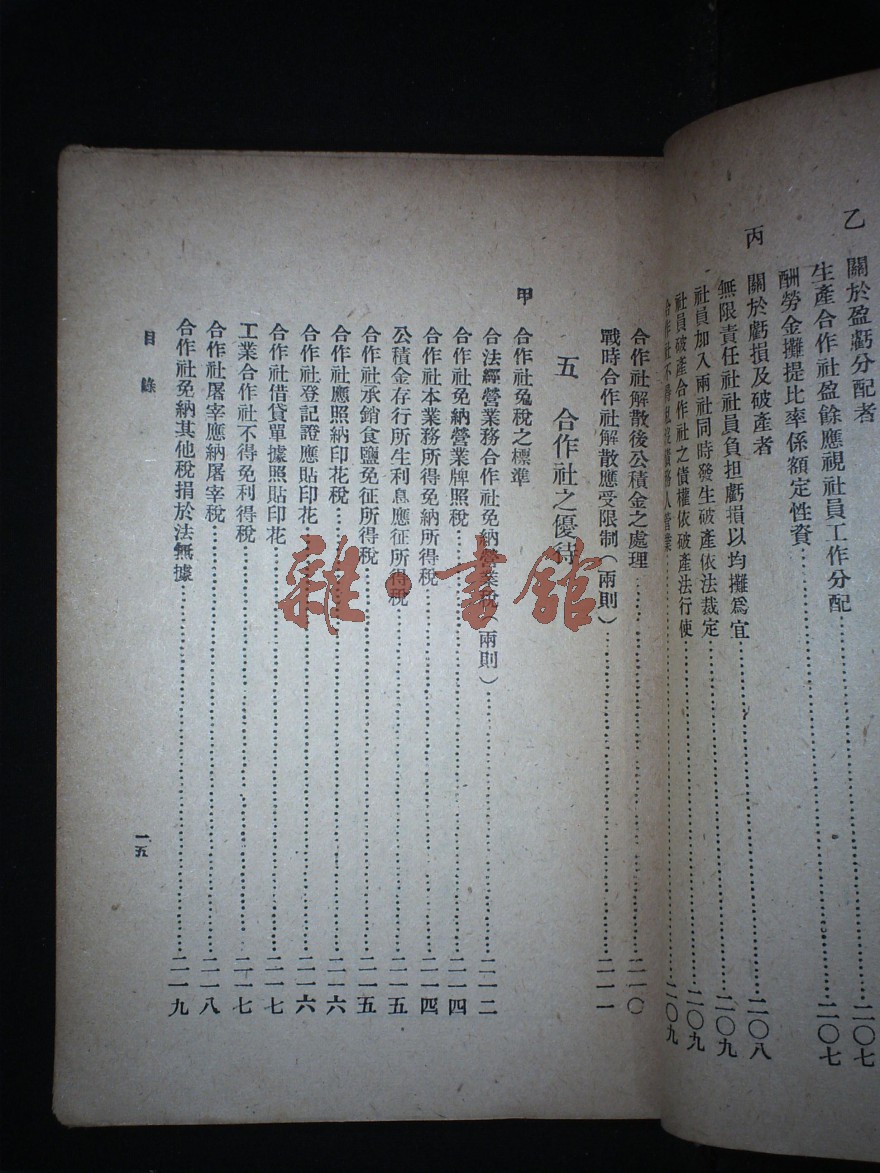 乙 關於盈虧分配者……二〇七
生產合作社盈餘應視社員工作分配……二〇七
酬勞金攤提比率係額定性資……
丙 關於虧損及破產者……二〇八
無限責任社社員負担虧損以均攤爲宜……二〇九
社員加入兩社同時發生破產依法裁定……二〇九
社員破產合作社之債權依破產法行使……二〇九
合作社不得
合作社解散後公積金之處理……二一〇
戰時合作社解散應受限制(兩則)……二一一
五 合作社之優待
甲 合作社免稅之標準
合法經營業務合作社免納營業稅(兩則)……二一二
合作社免納營業牌照稅……二一四
合作社本業務所得免納所得稅……二一四
公積金存行所生利息應征所得稅……二一五
合作社承銷食鹽免征所得稅……二一五
合作社應照納印花稅……二一六
合作社登記證應貼印花……二一六
合作社借貸單據照貼印花……二一七
工業合作社不得免利得稅……二一七
合作社屠宰應納屠宰稅……二一八
合作社免納其他稅捐於法無據……二一九
目錄
一五
雜·書館